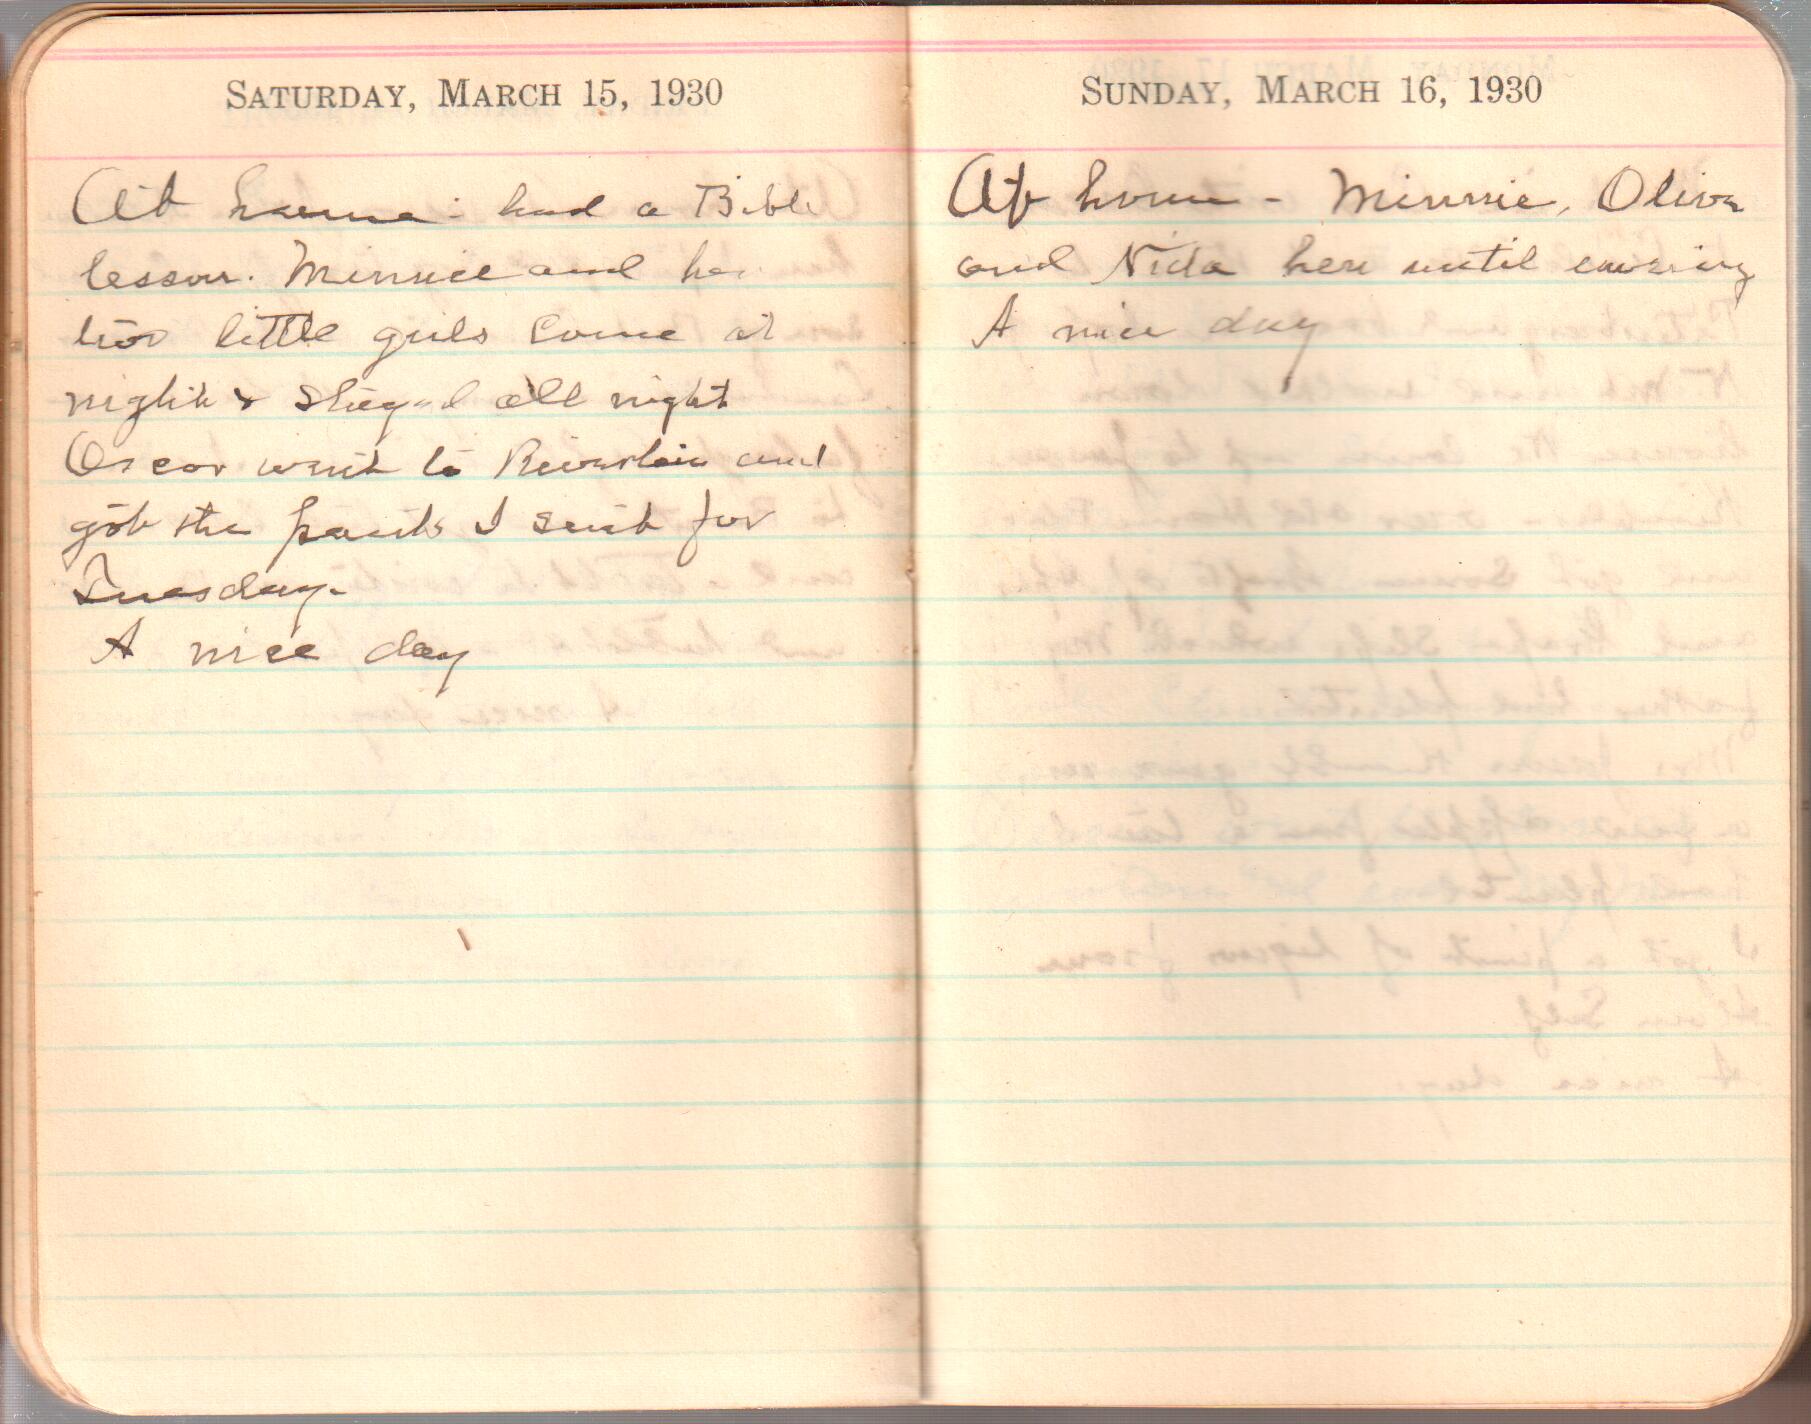 SATURDAY, MARCH 15, 1930
At home - had a Bible
lesson. Minnie and her
two little girls come at
night & stayed all night
Oscar went to and
got the I sent for
Tuesday.
A nice day
SUNDAY, MARCH 16, 1930
At home - Minnie, Oliva
and Nida here until evening
A nice day